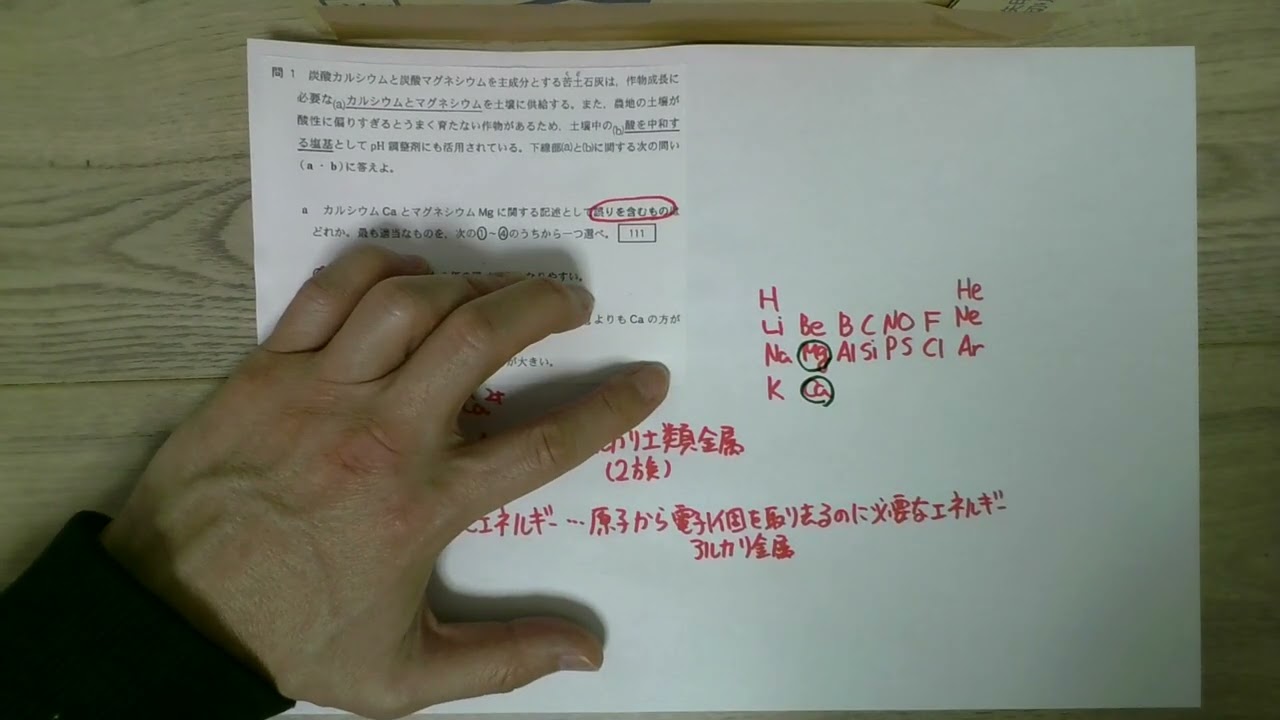 問1 炭酸カルシウムと炭酸マグネシウムを主成分とする苦土石灰は、作物成長に
必要な(a)カルシウムとマグネシウムを土壌に供給する。また、農地の土壌が
酸性に偏りすぎるとうまく育たない作物があるため、土壌中の(b)酸を中和す
る塩基としてpH調整剤にも活用されている。下線部(a)と(b)に関する次の問い
(a・b)に答えよ。
a カルシウムCaとマグネシウムMgに関する記述として誤りを含むもの
どれか。最も適当なものを、次の①~④のうちから一つ選べ。 111
なりやすい。
よりもCaの方が
が大きい。
H He
Li Be B C N O F Ne
Na Mg Al Si P S Cl Ar
K Ca
カリ土類金属
(2族)
エネルギー…原子から電子1個を取り去るのに必要なエネルギー
アルカリ金属